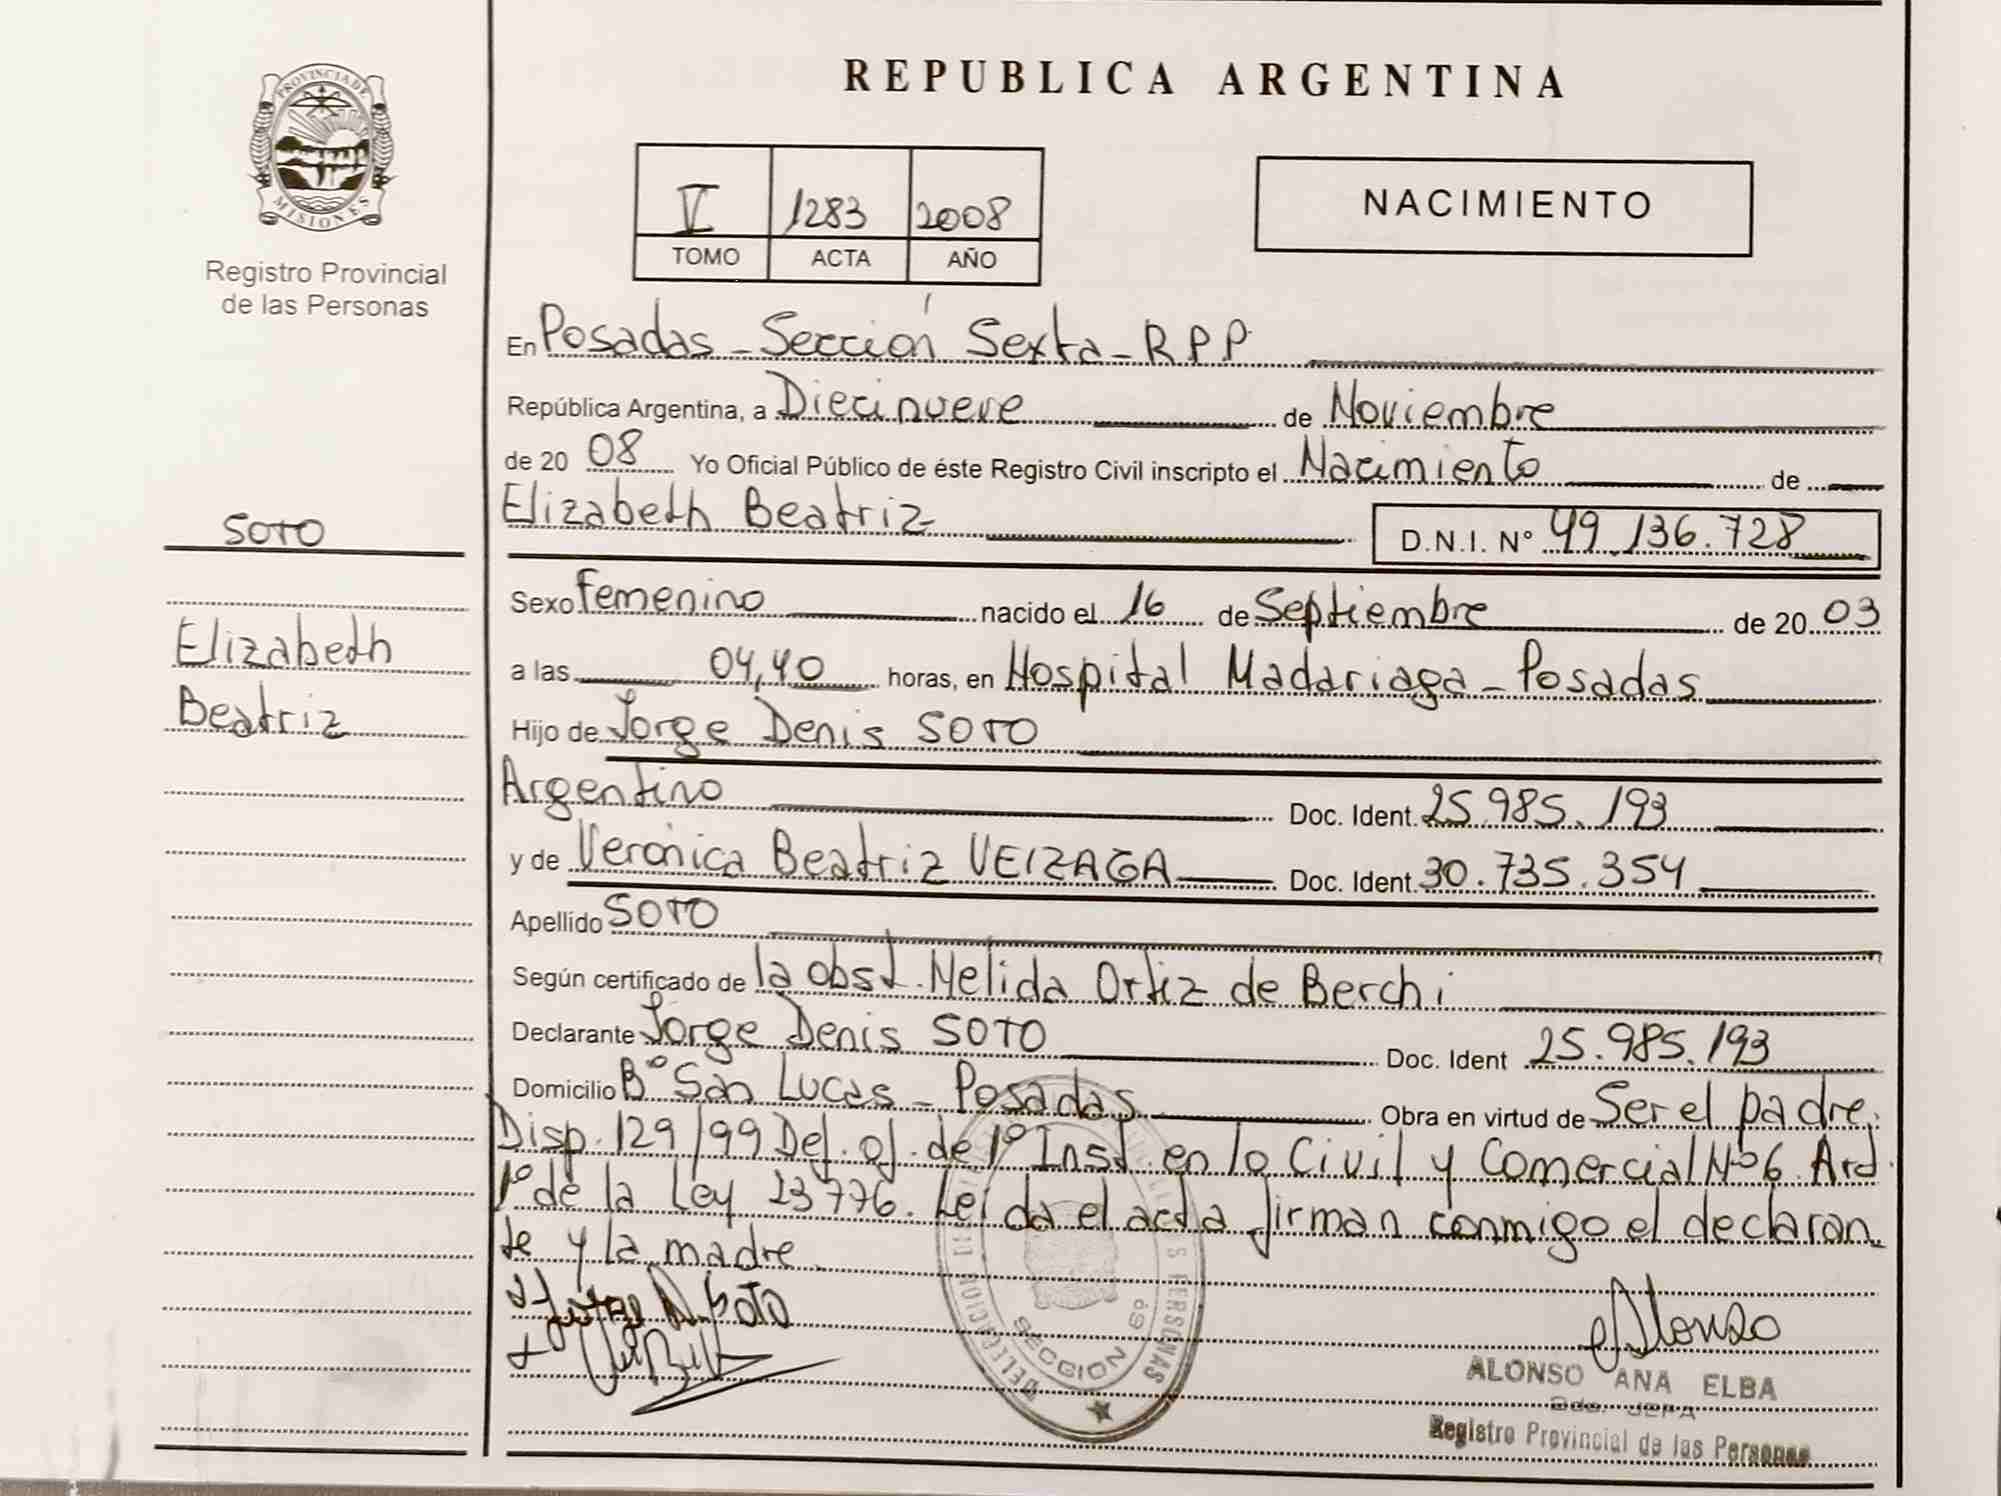 PROVINCIA DE
MISIONES
Registro Provincial
de las Personas
SOTO
Elizabeth
Beatriz
REPUBLICA ARGENTINA
V 1283 2008
TOMO ACTA AÑO
NACIMIENTO
En Posadas - Sección Sexta - RPP
República Argentina, a Diecinueve de Noviembre
de 20 08 Yo Oficial Público de éste Registro Civil inscripto el Nacimiento de
Elizabeth Beatriz D.N.I. N° 49.136.728
Sexo Femenino nacido el 16 de Septiembre de 20 03
a las 04,40 horas, en Hospital Madariaga - Posadas
Hijo de Jorge Denis SOTO
Argentino Doc. Ident. 25.985.193
y de Verónica Beatriz VEIZAGA Doc. Ident. 30.735.354
Apellido SOTO
Según certificado de la obst. Nelida Ortiz de Berchi
Declarante Jorge Denis SOTO Doc. Ident 25.985.193
Domicilio B° San Lucas - Posadas Obra en virtud de Ser el padre.
Disp. 129/99 Def. of. de 1° Inst. en lo Civil y Comercial N° 6. Art.
1° de la Ley 23776. Leída el acta firman conmigo el declaran
te y la madre.
Soto
Alonso
ALONSO ANA ELBA
Registro Provincial de las Personas
DELEGACION
PERSONAS
SECCION 6°